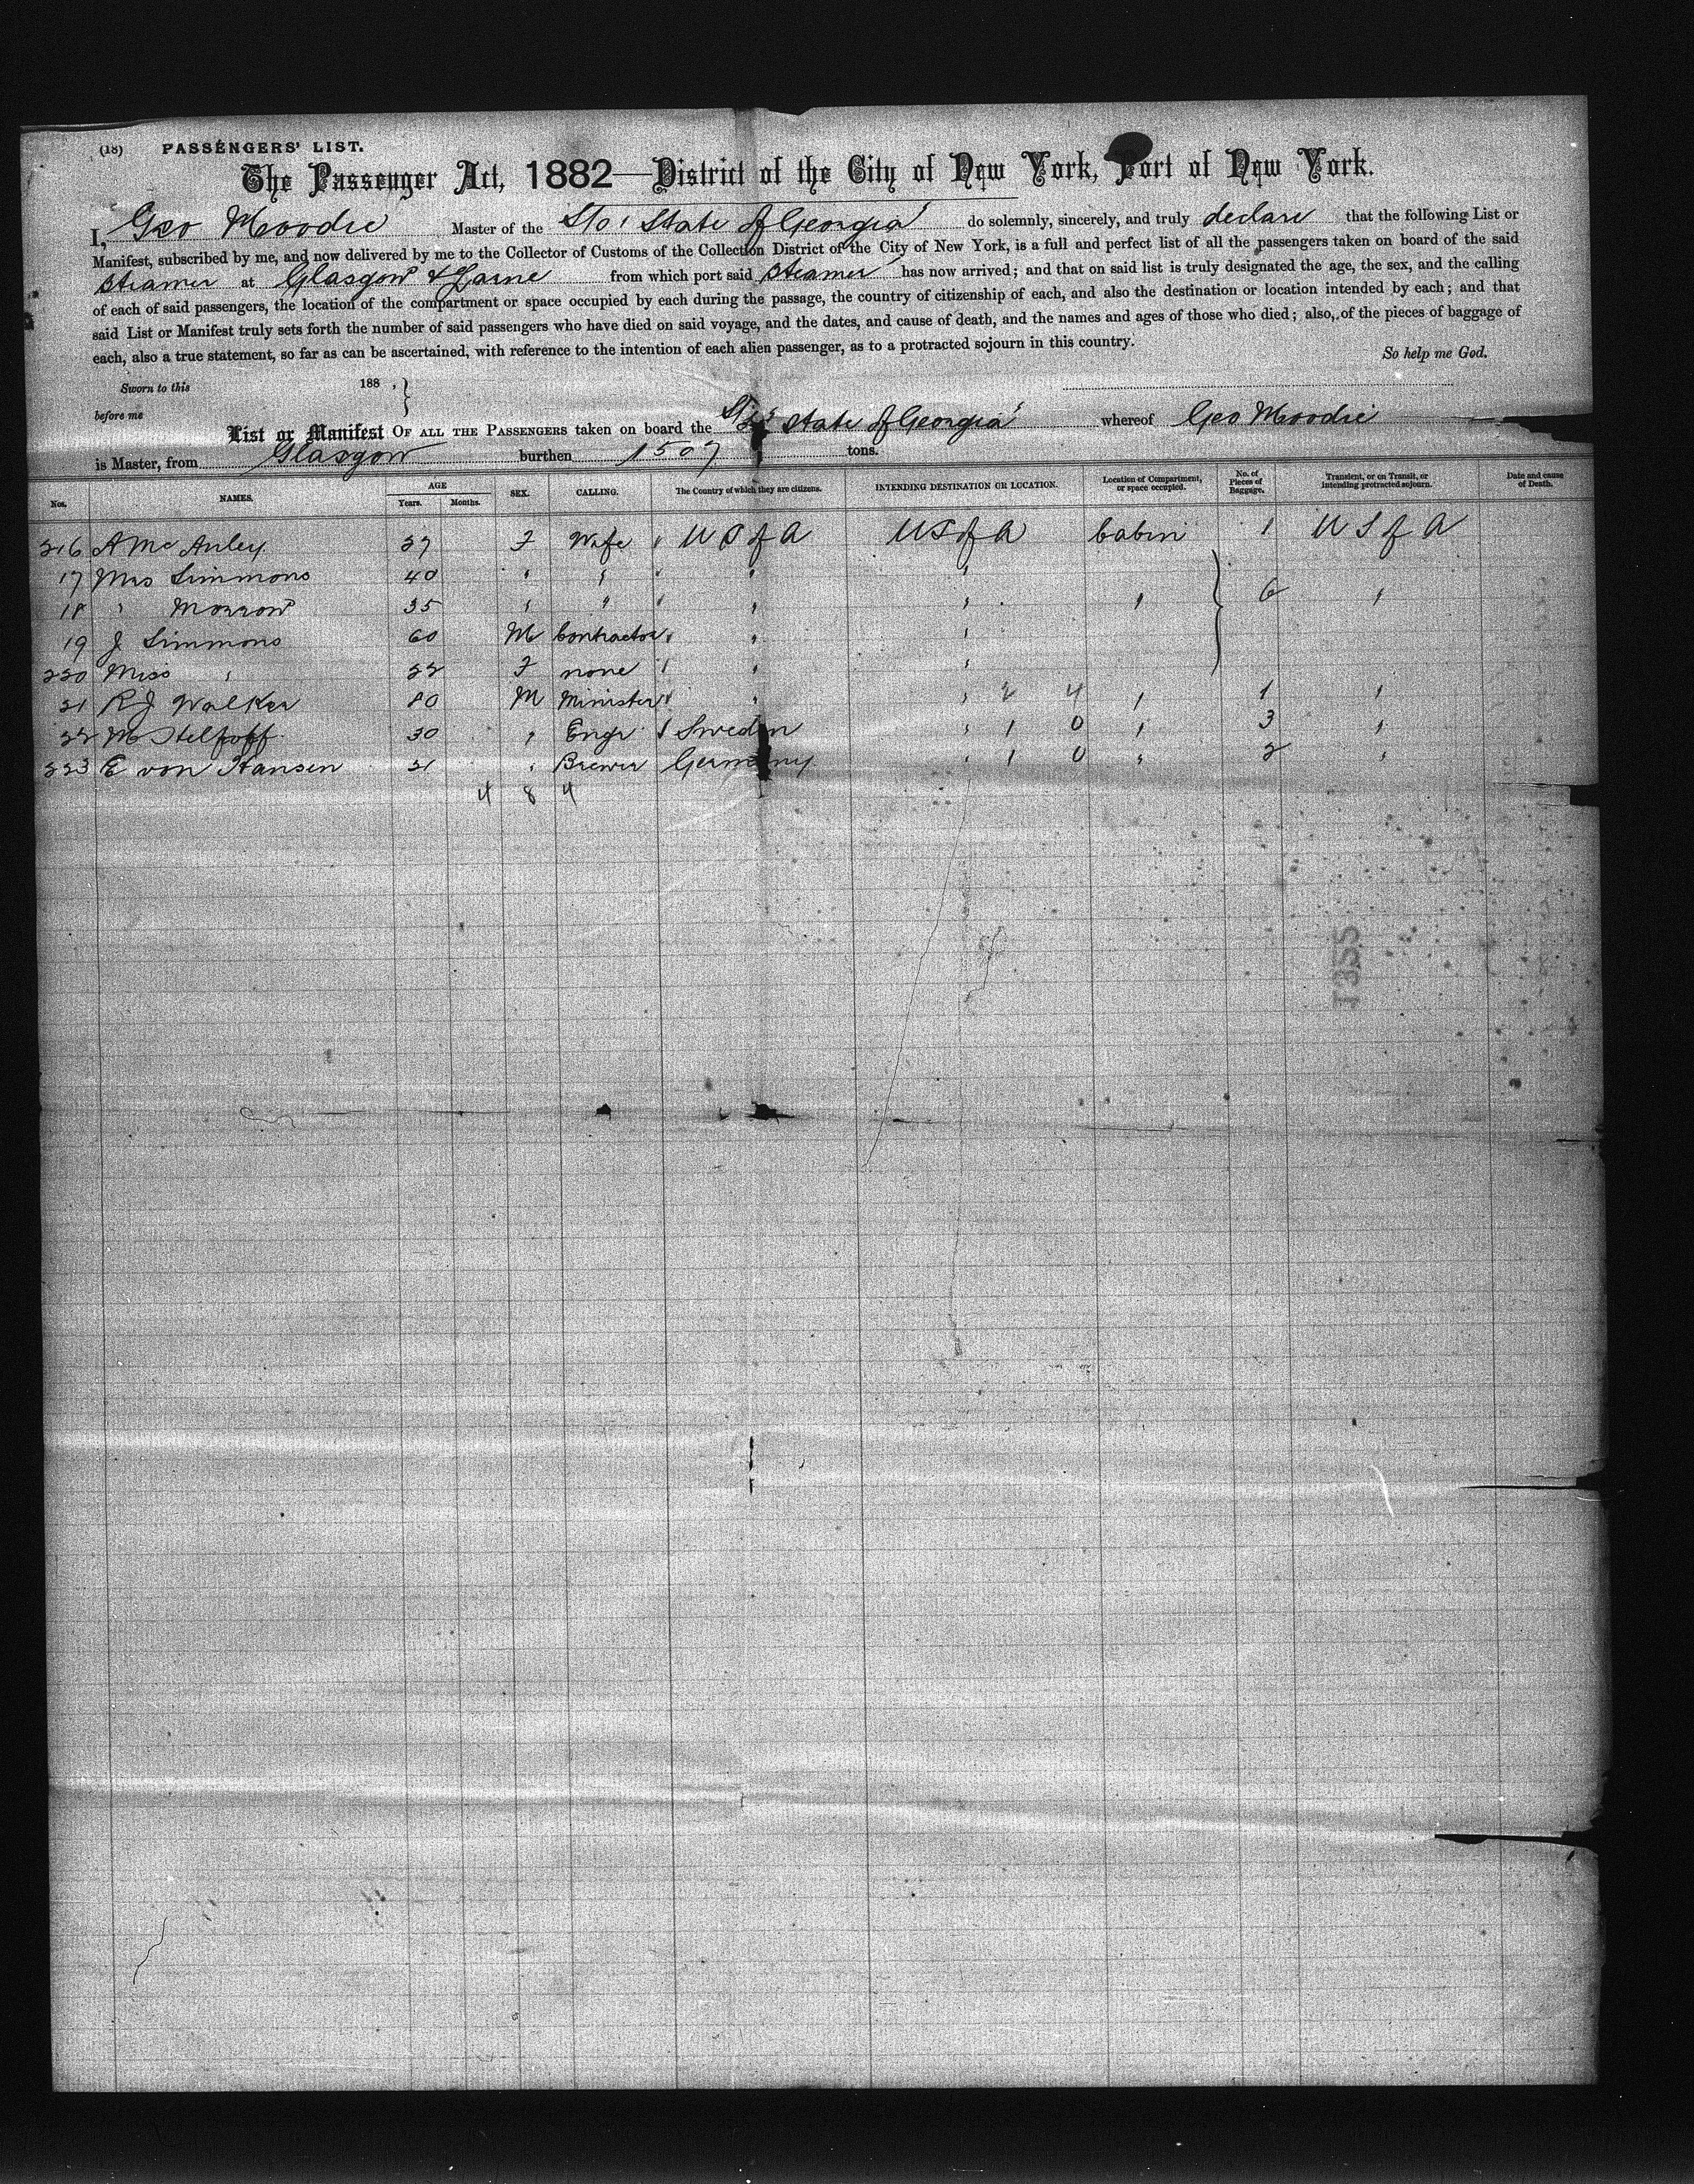 (18) PASSENGERS' LIST.
The Passenger Act, 1882—District of the City of New York, Port of New York.
I, Geo Moodie Master of the Str ' State of Georgia ' do solemnly, sincerely, and truly declare that the following List or
Manifest, subscribed by me, and now delivered by me to the Collector of Customs of the Collection District of the City of New York, is a full and perfect list of all the passengers taken on board of the said
Steamer at Glasgow & Larne from which port said Steamer has now arrived; and that on said list is truly designated the age, the sex, and the calling
of each of said passengers, the location of the compartment or space occupied by each during the passage, the country of citizenship of each, and also the destination or location intended by each; and that
said List or Manifest truly sets forth the number of said passengers who have died on said voyage, and the dates, and cause of death, and the names and ages of those who died; also, of the pieces of baggage of
each, also a true statement, so far as can be ascertained, with reference to the intention of each alien passenger, as to a protracted sojourn in this country.
So help me God.
Sworn to this 188 , }
before me
List or Manifest OF ALL THE PASSENGERS taken on board the Str ' State of Georgia ' whereof Geo Moodie
is Master, from Glasgow burthen 1507 tons.
Nos. NAMES. AGE Years. Months. SEX. CALLING. The Country of which they are citizens. INTENDING DESTINATION OR LOCATION. Location of Compartment, or space occupied. No. of Pieces of Baggage. Transient, or on Transit, or intending protracted sojourn. Date and cause of Death.
216 A McAuley 27 F Wife U S of A U S of A Cabin 1 U S of A
17 Mrs Simmons 40 " " " "
18 " Morrow 35 " " " " " 6 "
19 J Simmons 60 M Contractor " "
220 Miss " 22 F none " "
21 R J Walker 80 M Minister " " 2 4 " 1 "
22 M 30 " Engr Sweden " 1 0 " 3 "
223 E von Hansen 21 " Brewer Germany " 1 0 " 2 "
4 8 4
T355